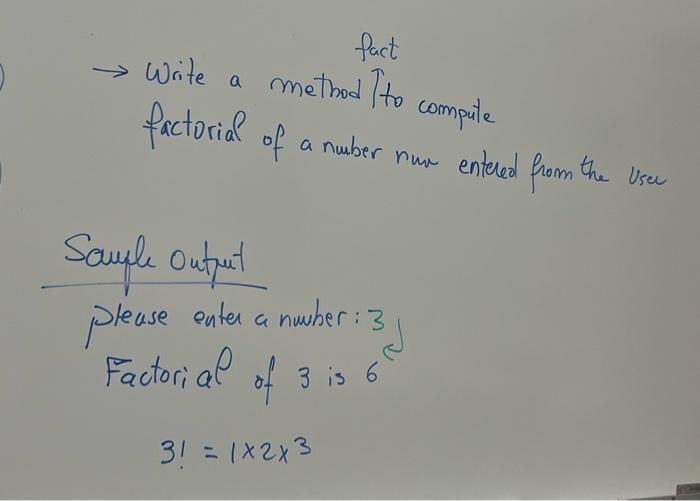 fact
→ Write a method ↑ to compute
factorial of a number num entered from the User
Sample Output
please enter a number : 3
Factorial of 3 is 6
3! = 1x2x3